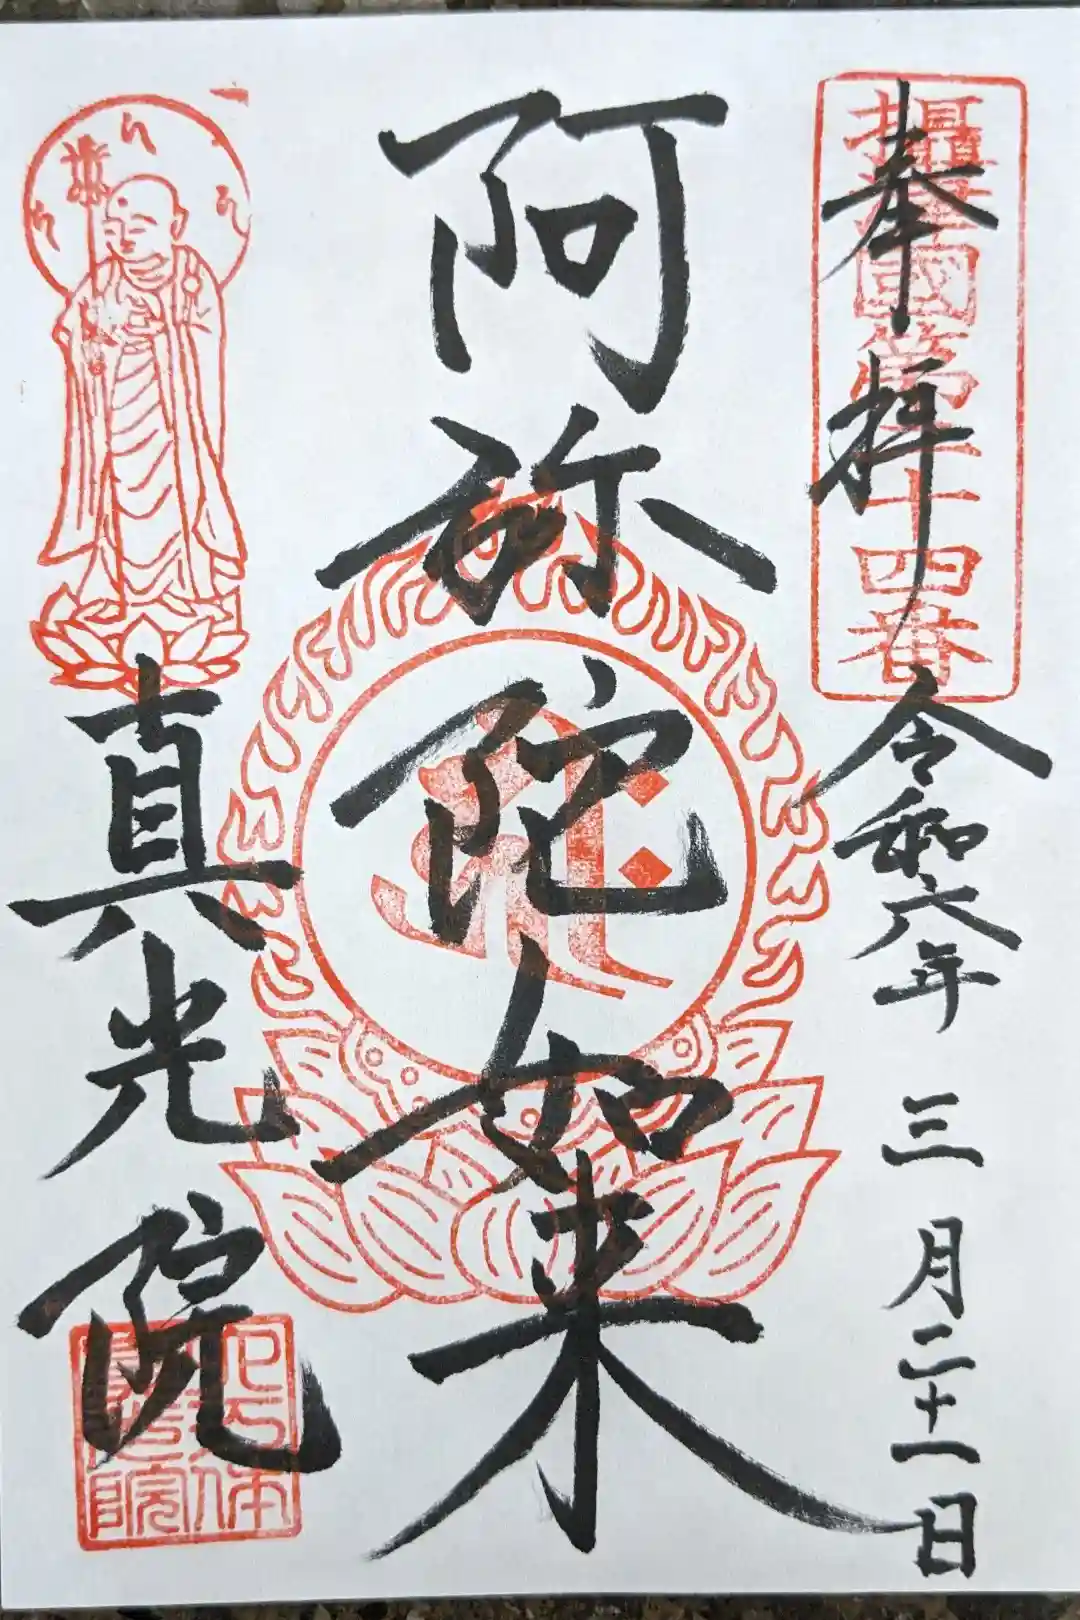 攝津國第二十四番
奉拝 令和六年 三月二十一日
阿弥陀如来
真光院